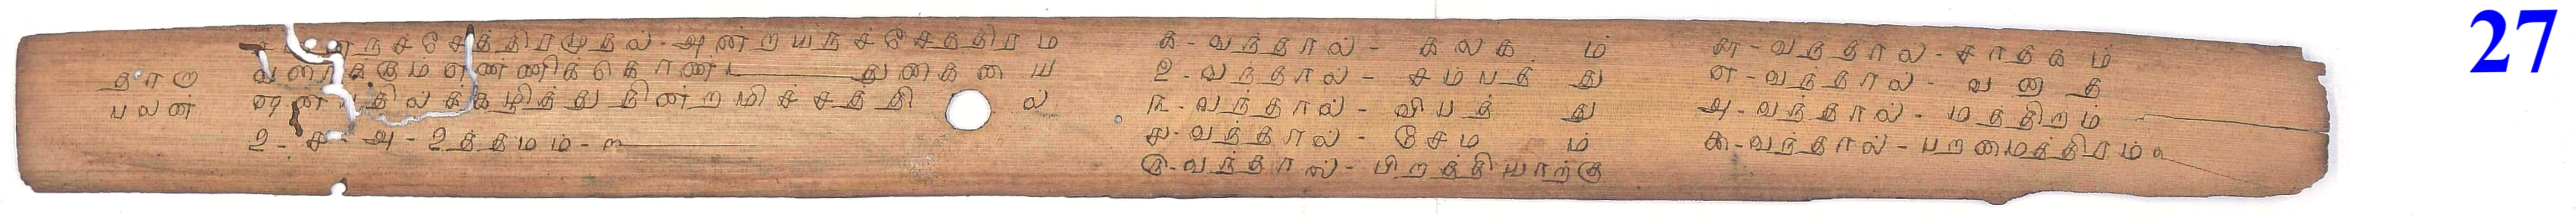 27
நச்சேத்திரமுதல் - அன்றயநச்சேத்திரம
தாரு
பலன்
வரைக்கும் எண்ணிக்கொண்ட துகையை
ல் க்கழித்து நின்ற மிச்சத்தில்
உ - ச - அ - உத்தமம் -
க - வந்தால் - கலகம்
உ - வந்தால் - சம்பத்து
ந - வந்தால் - வியத்து
ச - வந்தால் - சேமம்
ரு - வந்தால் - பிறத்தியாற்கு
சா - வந்தால் - சாதகம்
எ - வந்தால் - வதை
அ - வந்தால் - மத்திறம்
கூ - வந்தால் - பறமைத்திரம்